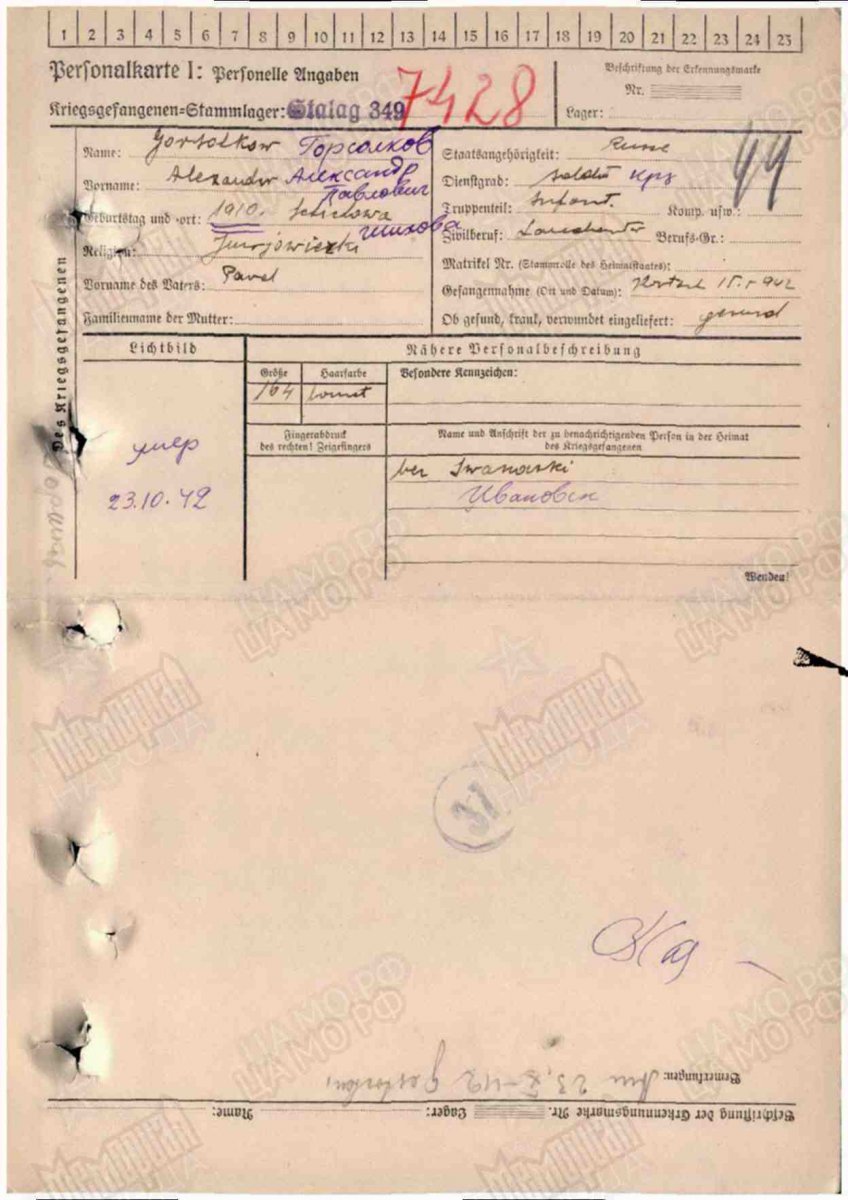 1 2 3 4 5 6 7 8 9 10 11 12 13 14 15 16 17 18 19 20 21 22 23 24 25
Personalkarte I: Personelle Angaben
Kriegsgefangenen=Stammlager: Stalag 349
7428
Beschriftung der Erkennungsmarke
Nr.
Lager:
Des Kriegsgefangenen
Name: Горсалков
Vorname: Alexander Александр
Павлович
Geburtstag und =ort: 1910. Schichowa
шихова
Religion:
Vorname des Vaters: Pavel
Familienname der Mutter:
Staatsangehörigkeit: Russe
Dienstgrad: Soldat крз
Truppenteil: Infant. Komp. usw.:
44
Zivilberuf: Berufs=Gr.:
Matrikel Nr. (Stammrolle des Heimatstaates):
Gefangennahme (Ort und Datum): Kertsch 15.5.942
Ob gesund, krank, verwundet eingeliefert: gesund
Lichtbild
умер
23.10.42
Nähere Personalbeschreibung
Größe Haarfarbe Besondere Kennzeichen:
164
Fingerabdruck
des rechten! Zeigefingers
Name und Anschrift der zu benachrichtigenden Person in der Heimat
des Kriegsgefangenen
Iwanowski
Ивановск
Wenden!
37
Bemerkungen: 23.X-42 Gestorben
Beschriftung der Erkennungsmarke Nr. Lager: Name:
ЦАМО РФ
Мемориал
НАРОДА